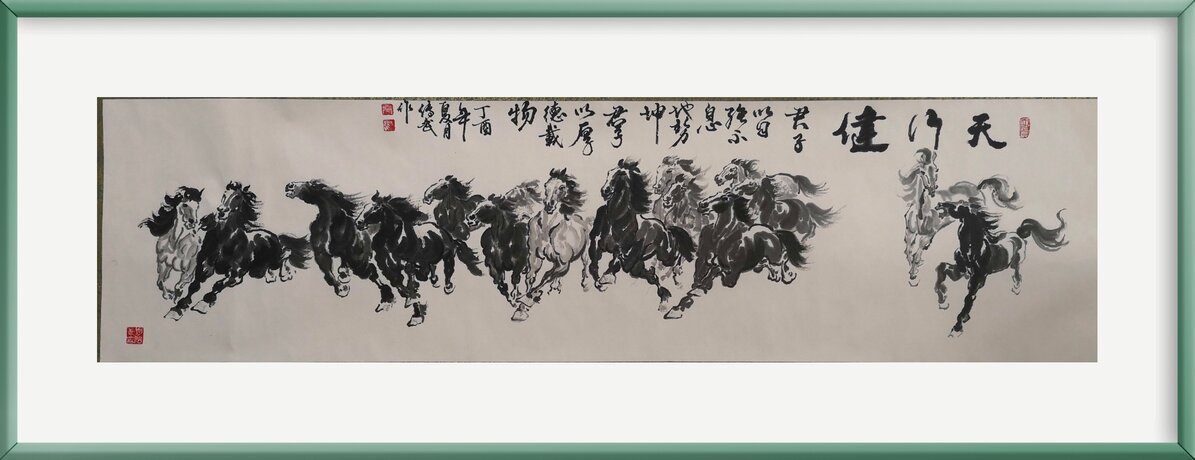 天行健
君子
以自
强不
息
地势
坤
君子
以厚
德载
物
丁酉
年
夏月
传武
作